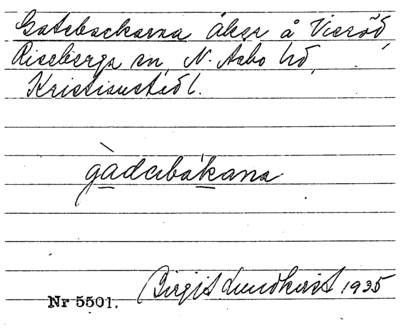 Gatebackarna åker å Vieröd,
Riseberga sn, N. Åsbo hd,
Kristianstad l.
gàdabákana
Birgit Lundkvist 1935
Nr 5501.